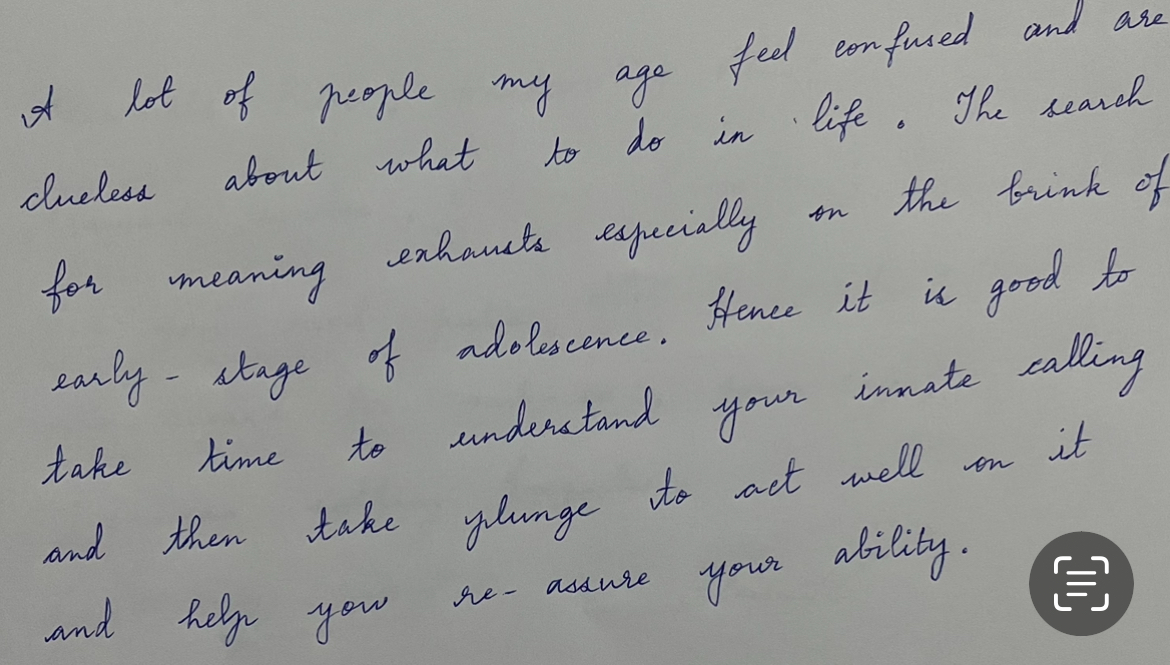 A lot of people my age feel confused and are
clueless about what to do in life. The search
for meaning exhausts especially on the brink of
early-stage of adolescence. Hence it is good to
take time to understand your innate calling
and then take plunge to act well on it
and help you re-assure your ability.